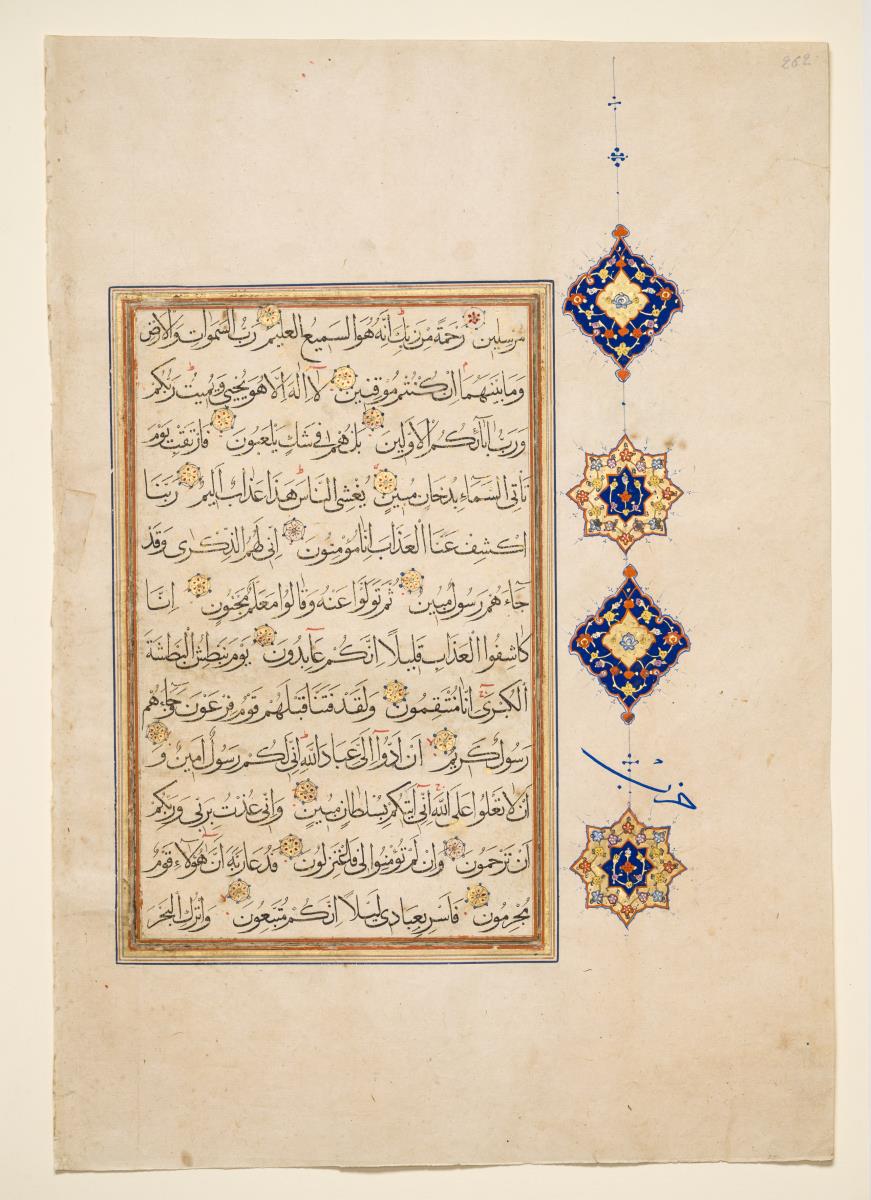 262
مرسلين رحمة من ربك انه هو السميع العليم رب السموات والارض
وما بينهما ان كنتم موقنين لا اله الا هو يحيي ويميت ربكم
ورب ابائكم الاولين بل هم في شك يلعبون فارتقب يوم
تاتى السماء بدخان مبين يغشى الناس هذا عذاب اليم ربنا
اكشف عنا العذاب انا مؤمنون انى لهم الذكرى وقد
جاءهم رسول مبين ثم تولوا عنه وقالوا معلم مجنون انا
كاشفوا العذاب قليلا انكم عايدون يوم نبطش البطشة
الكبرى انا منتقمون ولقد فتنا قبلهم قوم فرعون وجاءهم
رسول كريم ان ادوا الى عباد الله انى لكم رسول امين و
ان لا تعلوا على الله انى اتيكم بسلطان مبين وانى عذت بربى وربكم
ان ترجمون وان لم تؤمنوا لى فاعتزلون فدعا ربه ان هؤلاء قوم
مجرمون فاسر بعبادى ليلا انكم متبعون واترك البحر
حزب